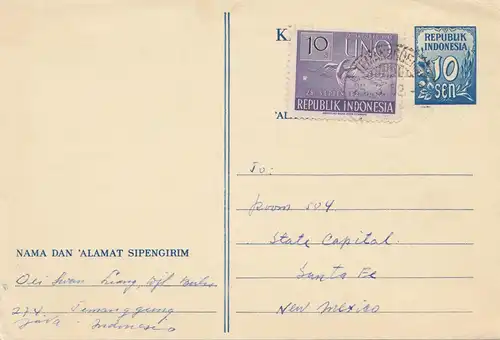 K
10
UNO
REPUBLIK INDONESIA
REPUBLIK
INDONESIA
10
SEN
'AL
To:
Room 504
State Capital
Santa Fe
New Mexico
NAMA DAN 'ALAMAT SIPENGIRIM
Oei Swan Liang,
274 Temanggung
Java - Indonesia